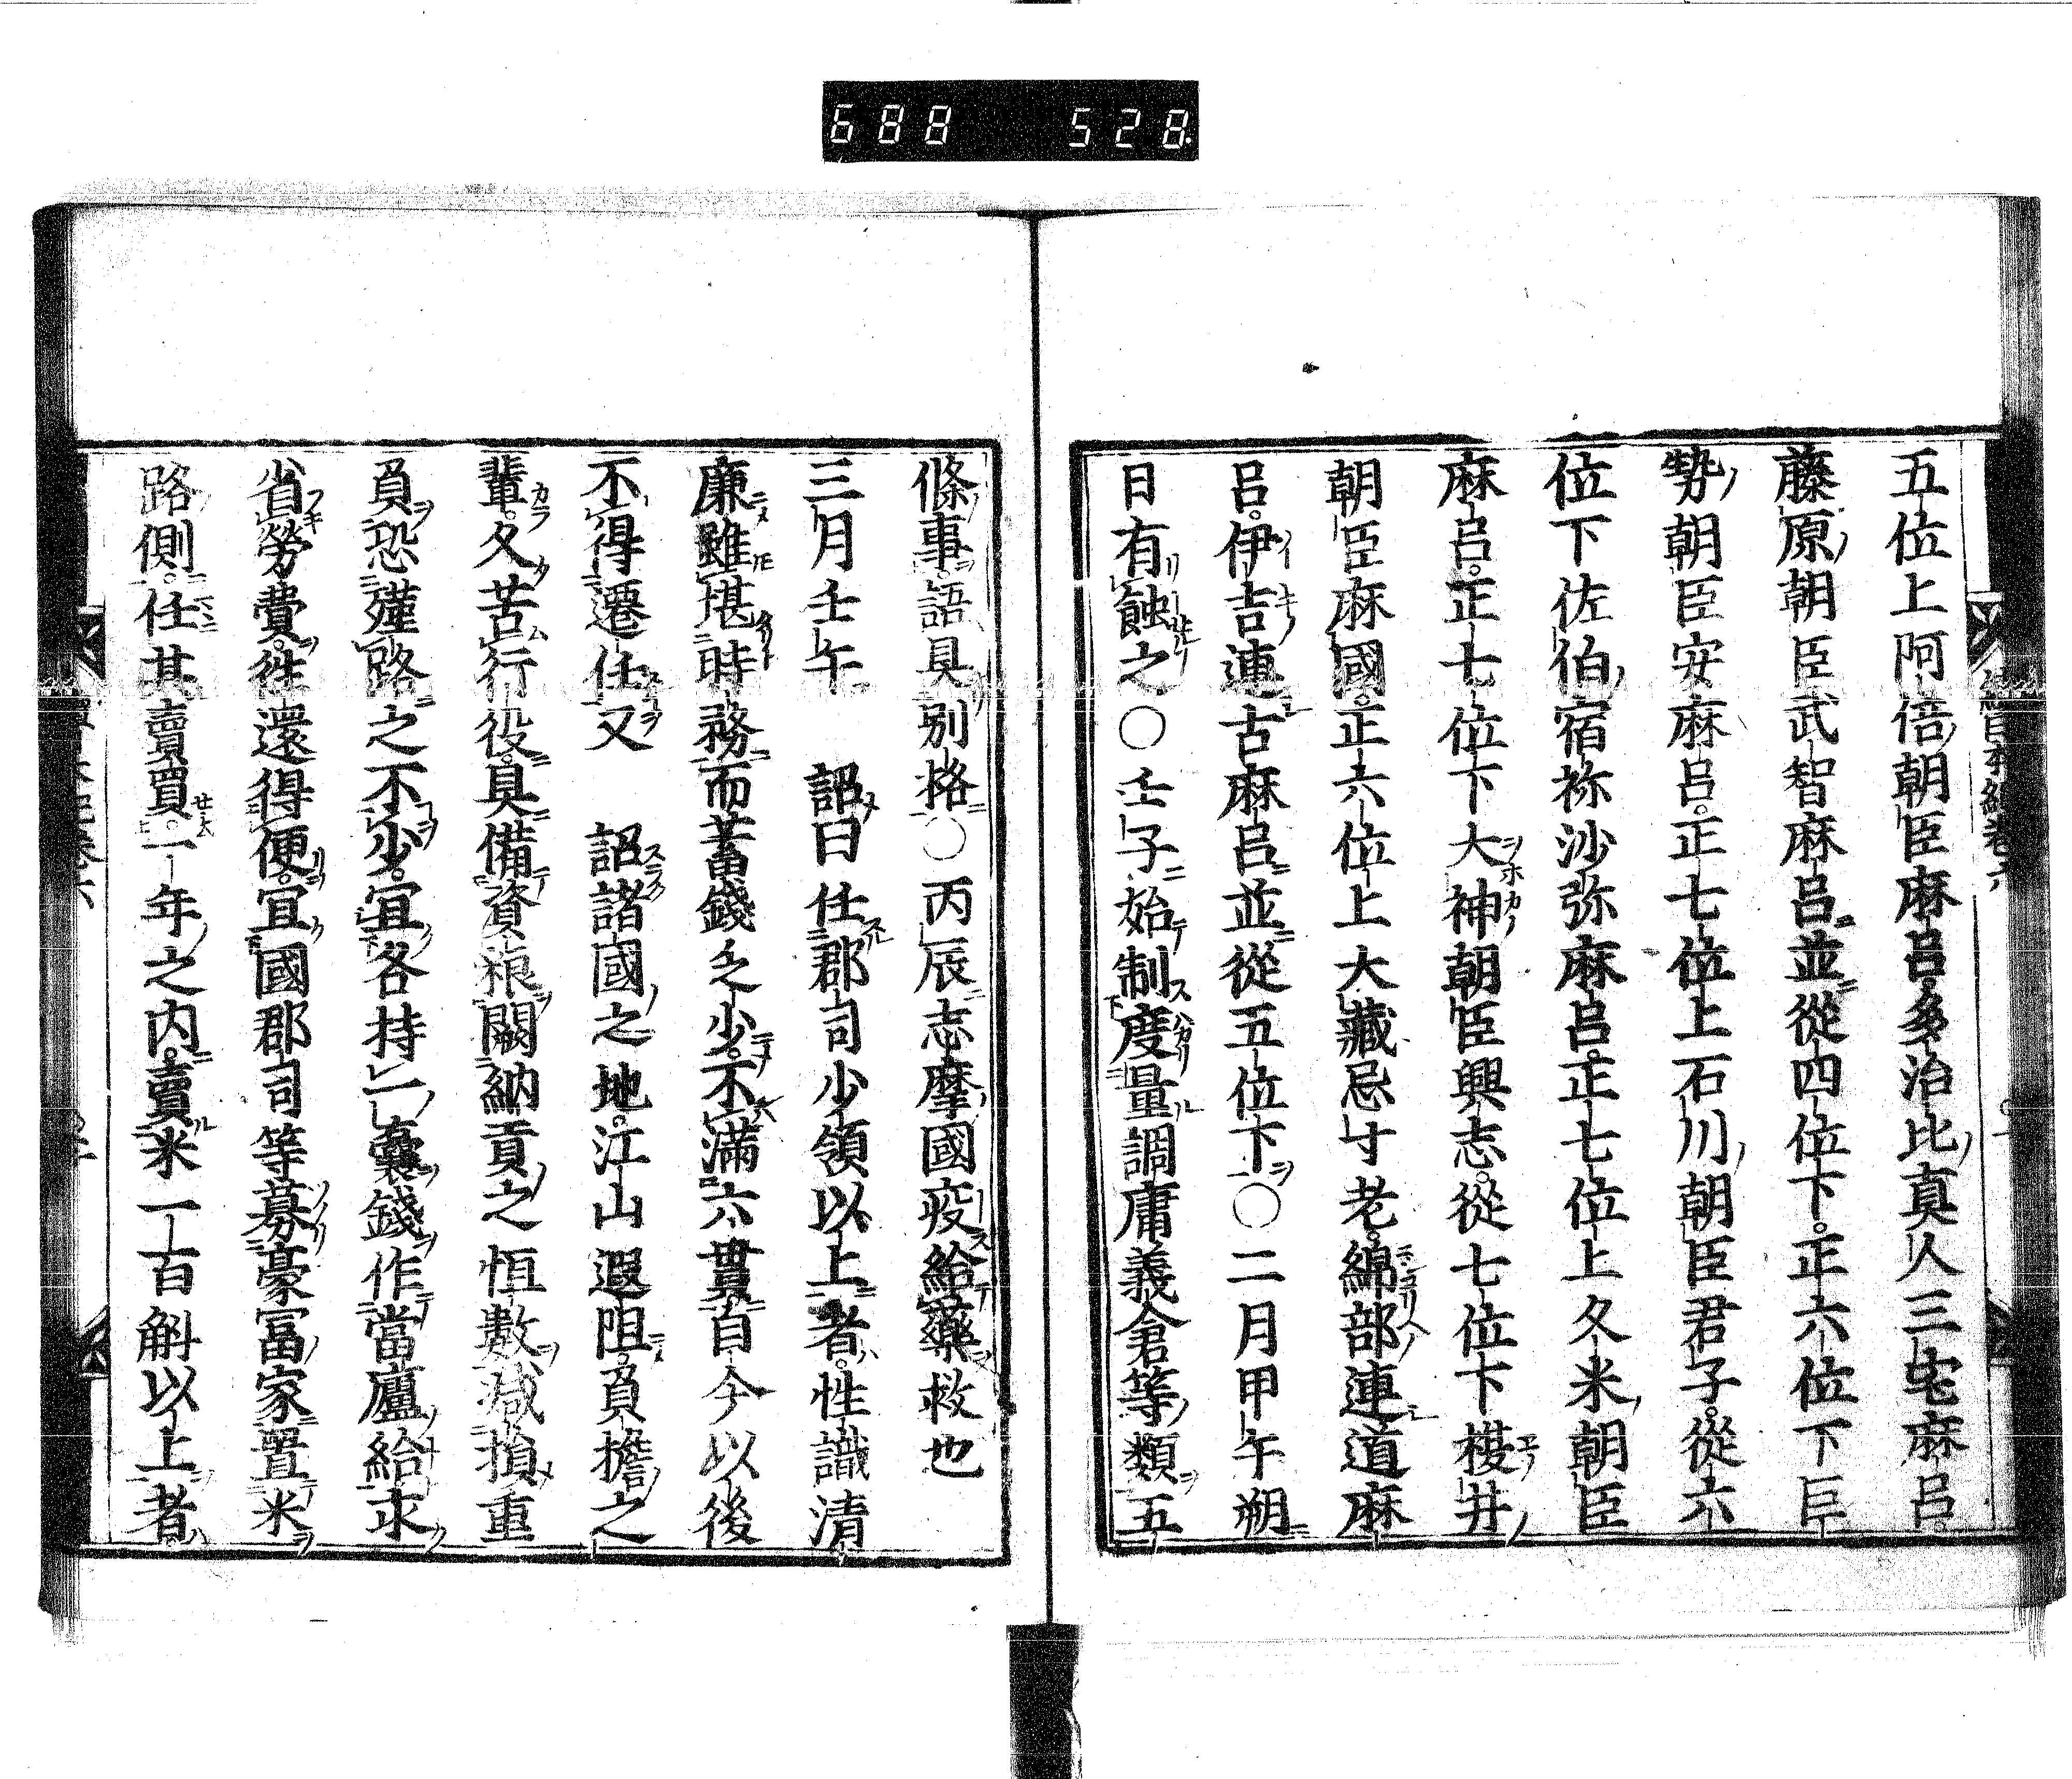 688 528
五位上阿倍朝臣麻呂。多治比真人三宅麻呂。
藤原朝臣武智麻呂並從四位下。正六位下巨
勢朝臣安麻呂。正七位上石川朝臣君子。從六
位下佐伯宿祢沙弥麻呂。正七位上久米朝臣
麻呂。正七位下大神朝臣興志。從七位下榎井
朝臣麻國。正六位上大藏忌寸老。綿部連道麻
呂。伊吉連古麻呂並從五位下○二月甲午朔
日有蝕之○壬子始制度量調庸義倉等類五
條事。語具別格○丙辰志摩國疫給藥救也
三月壬午 詔曰任郡司少領以上者。性識清
廉雖堪時務而蓄錢乏少。不滿六貫自今以後
不得遷任又 詔諸國之地。江山遐阻。負擔之
輩。久苦行役。具備資粮闕納貢之恒數減損重
負恐殣路之不少。宜各持一囊錢作當廬給永
省勞費。徃還得便。宜國郡司等募豪冨家置米
路側。任其賣買。一年之内。賣米一百斛以上者。